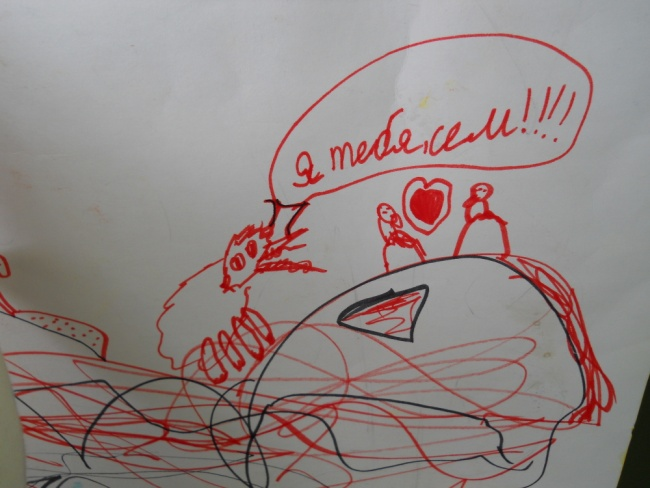 Я тебя,сем!!!!!